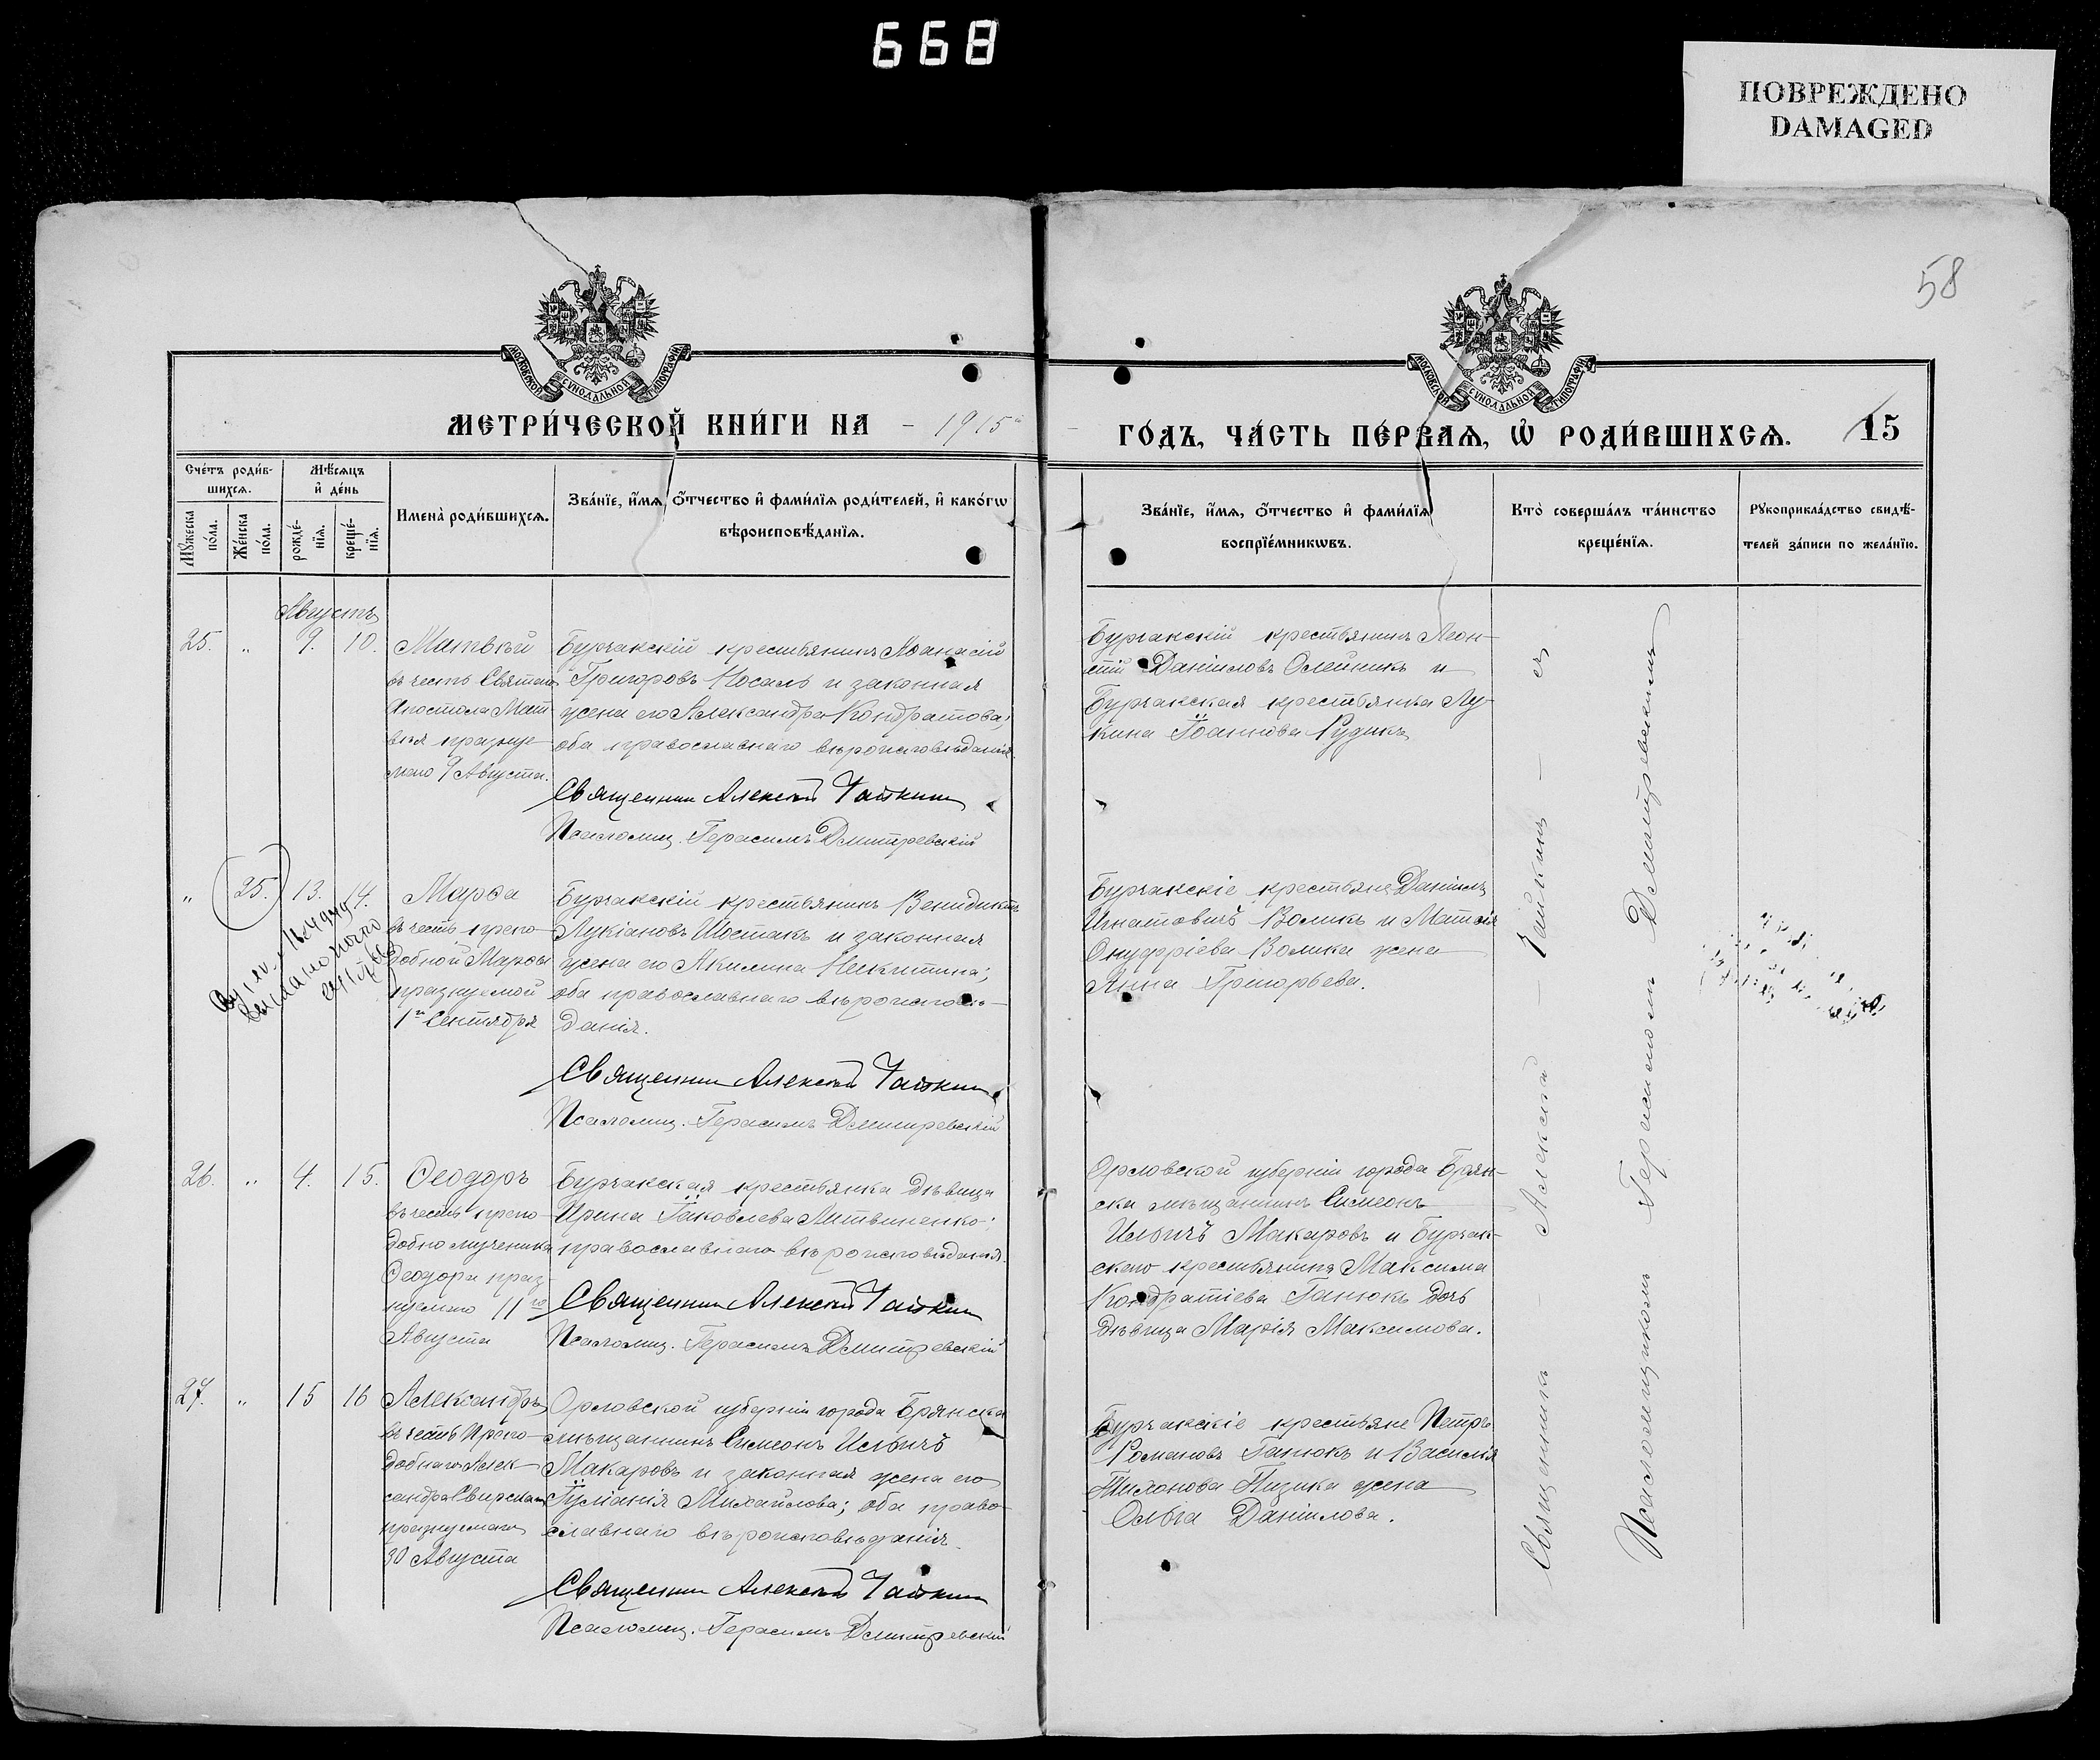 668
ПОВРЕЖДЕНО
DAMAGED
58
МОСКОВСКОЙ СѴНОДАЛЬНОЙ ТИПОГРАФІИ
МОСКОВСКОЙ СѴНОДАЛЬНОЙ ТИПОГРАФІИ
МЕТРИ́ЧЕСКОЙ КНИ́ГИ НА - 1915
ГО́ДЪ, ЧА́СТЬ ПЕ́РВАѦ, Ѡ РОДИ́ВШИХСѦ. 15
Сче́тъ роди́в-
шихсѧ.
Мꙋ́жеска по́ла.
Же́нска по́ла.
Мѣ́сѧцъ
и҆ де́нь
рожде́-
нїѧ.
креще́-
нїѧ.
Имена̀ роди́вшихсѧ.
Зва́нїе, и҆́мѧ, ѻ҆́тчество и҆ фами́лїѧ роди́телей, и҆ како́гѡ
вѣроисповѣ́данїѧ.
Зва́нїе, и҆́мѧ, ѻ҆́тчество и҆ фами́лїѧ
воспрїе́мникѡвъ.
Кто̀ соверша́лъ та́инство
креще́нїѧ.
Рꙋкоприкла́дство свидѣ́-
телей за́писи по жела́нїю.
Августъ
25. „ 9. 10.
Матвѣй
въ честь Святаго
Апостола Мат-
вѣя празнуе-
маго 9 Августа.
Бурчакскій крестьянинъ Аѳанасій
Григоровъ Носаль и законная
жена его Александра Кондратова;
оба православнаго вѣроисповѣданія.
Священник Алексѣй Чайкин
Псаломщ. Герасимъ Дмитревскій
Бурчакскій крестьянинъ Леон-
тій Даніиловъ Олейникъ и
Бурчакская крестьянка Лу-
кина Іоаннова Рудикъ
„ 25. 13. 14.
Марѳа
въ честь препо-
добной Марѳы
празнуемой
1го Сентября
Бурчакскій крестьянинъ Венидиктъ
Лукіановъ Шостакъ и законная
жена его Акилина Никитина;
оба православнаго вѣроисповѣ-
данія.
Священник Алексѣй Чайкин
Псаломщ. Герасимъ Дмитревскій
Бурчакскіе крестьяне Даніилъ
Игнатовичъ Воликъ и Матѳія
Онуфріева Волика жена
Анна Григорьева.
26. „ 4. 15.
Ѳеодоръ
въ честь препо-
добномученика
Ѳеодора праз-
нуемаго 11го
Августа
Бурчакская крестьянка дѣвица
Ирина Іаковлева Литвиненко;
православнаго вѣроисповѣданія.
Священник Алексѣй Чайкин
Псаломщ. Герасимъ Дмитревскій
Орловской губерніи города Брян-
ска мѣщанинъ Симеонъ
Ильичъ Макаровъ и Бурчак-
скаго крестьянина Максима
Кондратіева Ганюкъ дочь
дѣвица Марія Максимова.
27. „ 15 16
Александръ
въ честь Препо-
добнаго Алек-
сандра Свирскаго
празнуемаго
30 Августа
Орловской губерніи города Брянска
мѣщанинъ Симеонъ Ильичъ
Макаровъ и законная жена его
Іуліанія Михайлова; оба право-
славнаго вѣроисповѣданія.
Священник Алексѣй Чайкин
Псаломщ. Герасимъ Дмитревскій
Бурчакскіе крестьяне Петръ
Романовъ Ганюкъ и Василія
Тихонова Пизика жена
Ольга Даніилова.
Священникъ - Алексѣй - Чайкинъ - съ
Псаломщикомъ Герасимомъ Дмитревскимъ